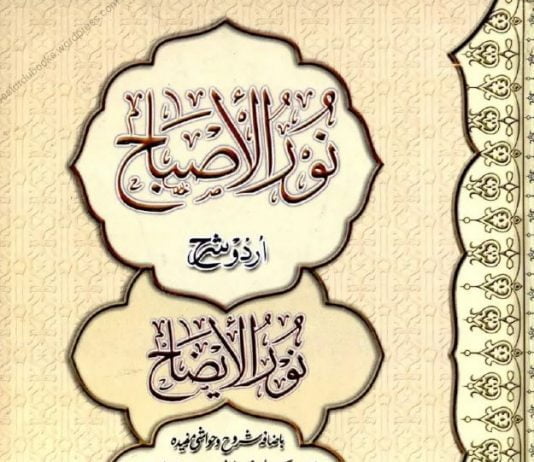 نُورُ الأَصْبَاح
اُردو شرح
نُورُ الأيضَاح
باضافہ شروح و حواشی مفیدہ